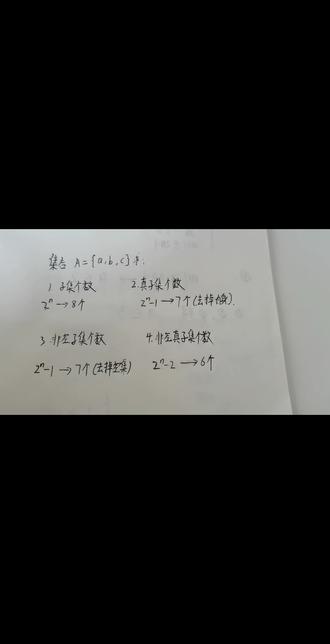 集合 A={a,b,c}中.
1. 子集个数 2. 真子集个数
2ⁿ→8个 2ⁿ-1→7个(去掉自身).
3. 非空子集个数 4. 非空真子集个数
2ⁿ-1→7个(去掉空集) 2ⁿ-2→6个